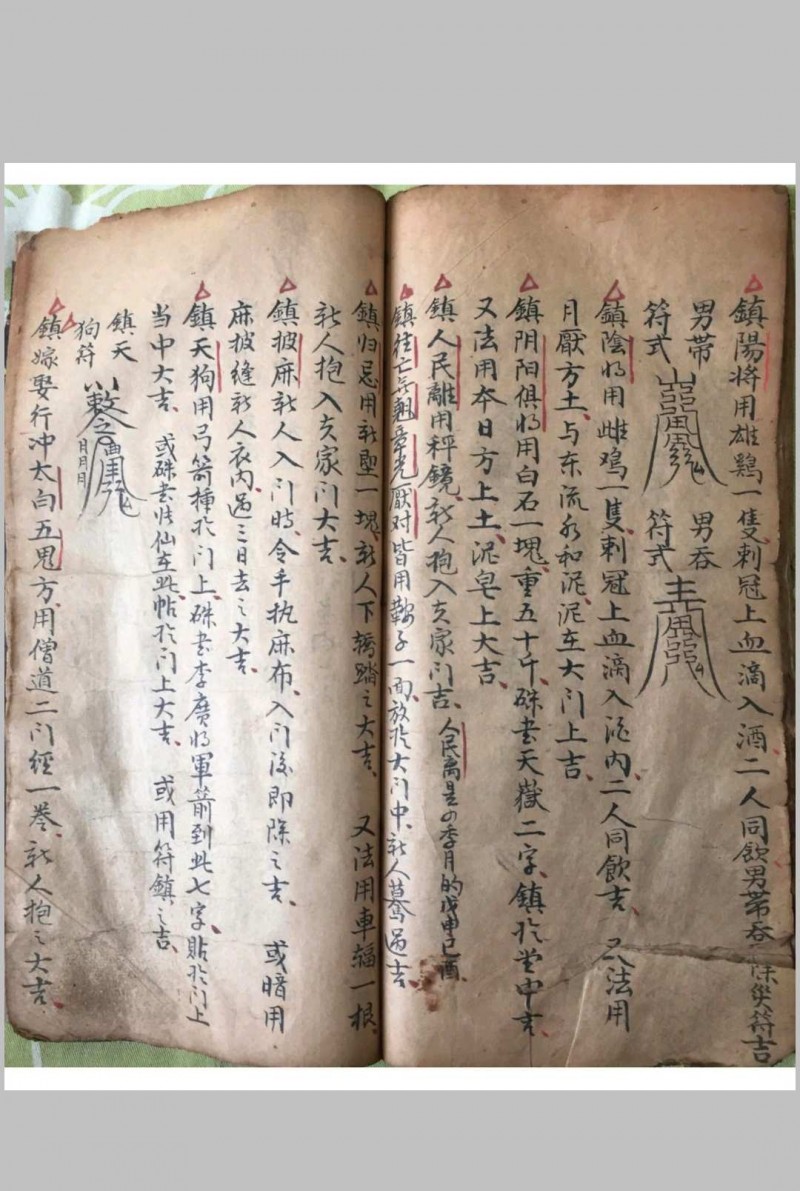 鎮陽將用雄鷄一隻刺冠上血滴入酒二人同飲男带吞除災符吉
男帶
符式
男吞
符式
鎮陰將用雌鸡一隻刺冠上血滴入酒内二人同飲吉 又法用
月厭方土与东流水和泥泥在大门上吉
鎮阴阳俱将用白石一塊重五十斤硃书天嶽二字鎮於堂中吉
又法用夲日方上土泥皂上大吉
鎮人民離用秤鏡新人抱入夫家门吉 人民离是四季月的戊申己酉
鎮往亡章光厭对皆用鞍子一面放於大门中新人驀過吉
鎮归忌用新塈一塊新人下轎踏之大吉 又法用車辐一根
新人抱入夫家门大吉
鎮披麻新人入门時令手执麻布入门後即除之吉 或暗用
麻披缝新人衣内過三日去之大吉
鎮天狗用弓箭插於门上硃书李廣將軍箭到此七字貼於门上
当中大吉 或硃书張仙在此帖於门上大吉 或用符鎮之吉
鎮天
狗符
鎮嫁娶行冲太白五鬼方用僧道二门經一卷新人抱之大吉